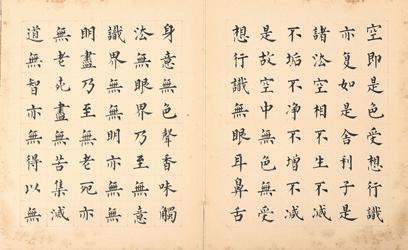 空即是色受想行識
亦复如是舍利子是
諸法空相不生不滅
不垢不净不增不減
是故空中無色無受
想行識無眼耳鼻舌
身意無色聲香味觸
法無眼界乃至無意
識界無無明亦無無
明盡乃至無老死亦
無老死盡無苦集滅
道無智亦無得以無